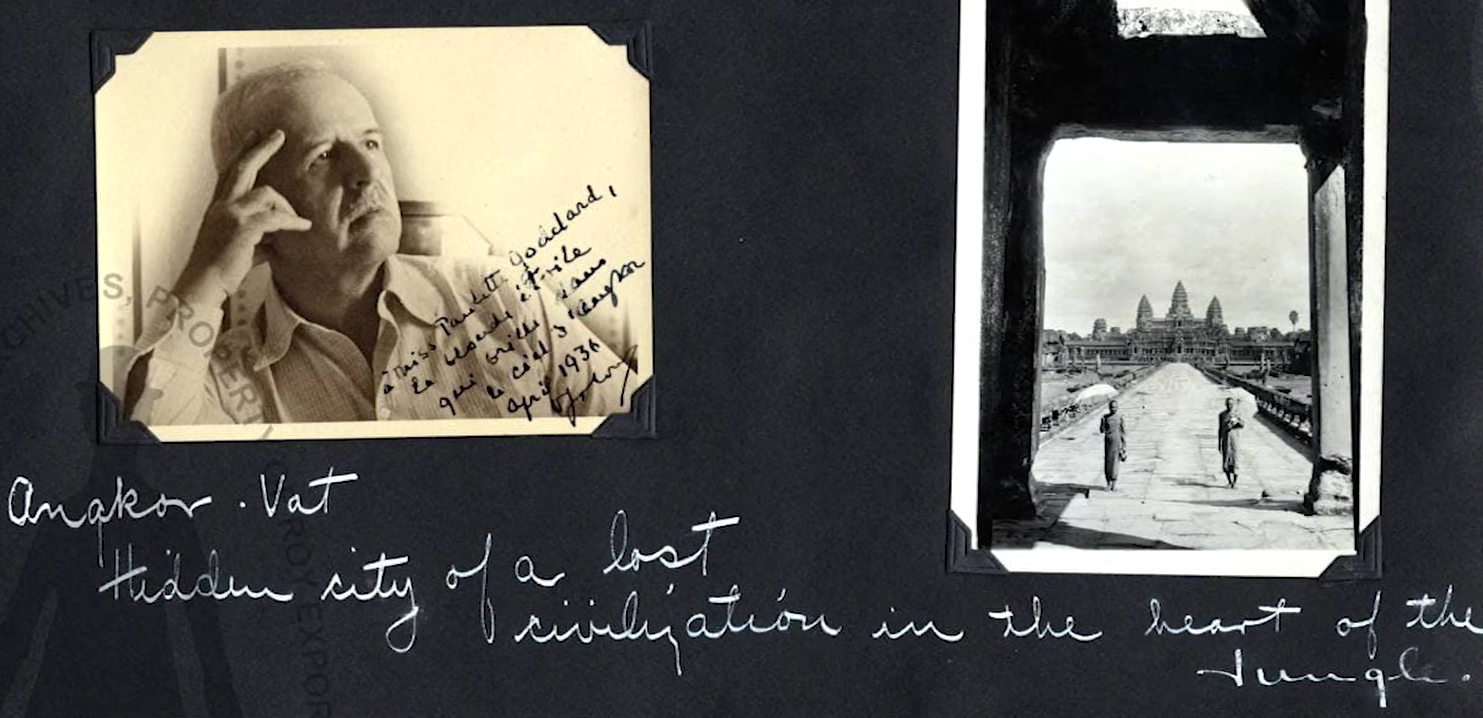 à Miss Paulette Goddard,
la blonde étoile
qui brille dans
le ciel d'Angkor
April 1936
Angkor . Vat
Hidden city of a lost
civilization in the heart of the
Jungle.
ARCHIVES, PROPERTY
ROY EXPOR